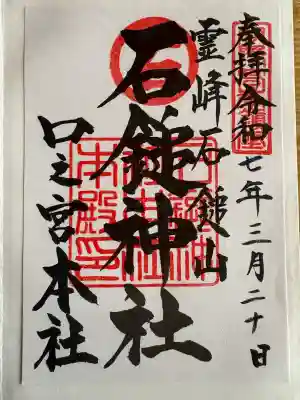 奉拝令和七年三月二十日
霊峰石鎚山
石鎚神社
口之宮本社
本殿之印